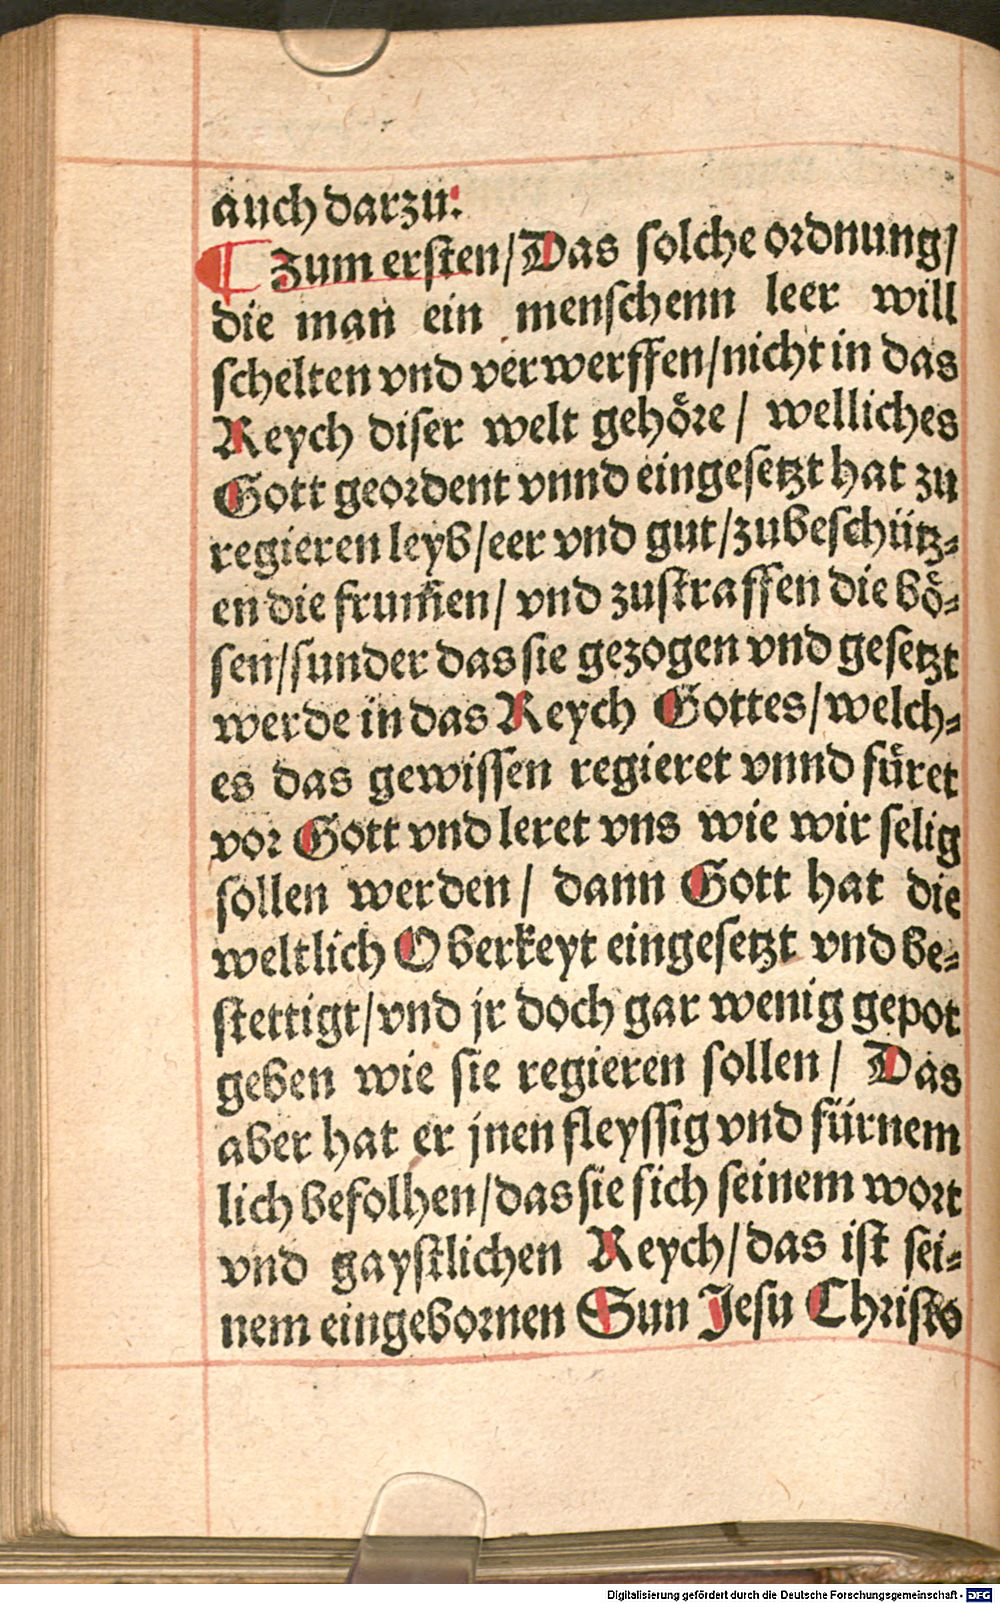 auch darzu.
¶ Zum ersten/ Das solche ordnung/
die man ein menschenn leer will
schelten vnd verwerffen/ nicht in das
Reych diser welt gehöre/ welliches
Gott geordent vnnd eingesetzt hat zu
regieren leyb/ eer vnd gut/ zubeschütz-
en die frum̃en/ vnd zustraffen die bö-
sen/ sunder das sie gezogen vnd gesetzt
werde in das Reych Gottes/ welch-
es das gewissen regieret vnnd füret
vor Gott vnd leret vns wie wir selig
sollen werden/ dann Gott hat die
weltlich Oberkeyt eingesetzt vnd be-
stettigt/ vnd jr doch gar wenig gepot
geben wie sie regieren sollen/ Das
aber hat er jnen fleyssig vnd fürnem
lich befolhen/ das sie sich seinem wort
vnd gaystlichen Reych/ das ist sei-
nem eingebornen Sun Jesu Christo
Digitalisierung gefördert durch die Deutsche Forschungsgemeinschaft - DFG